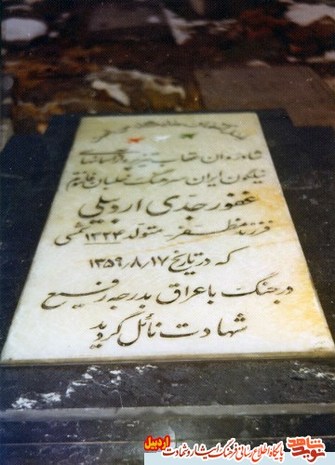 شادروان
نیلگون ایران سرهنگ خلبان
غفور جدی اردبیلی
فرزند مظفر متولد ۱۳۲۴ شمسی
که در تاریخ ۱۳۵۹/۸/۱۷
در جنگ با عراق بدرجه رفیع
شهادت نائل گردید
نوید شاهد
پایگاه اطلاع رسانی فرهنگ ایثار و شهادت
اردبیل